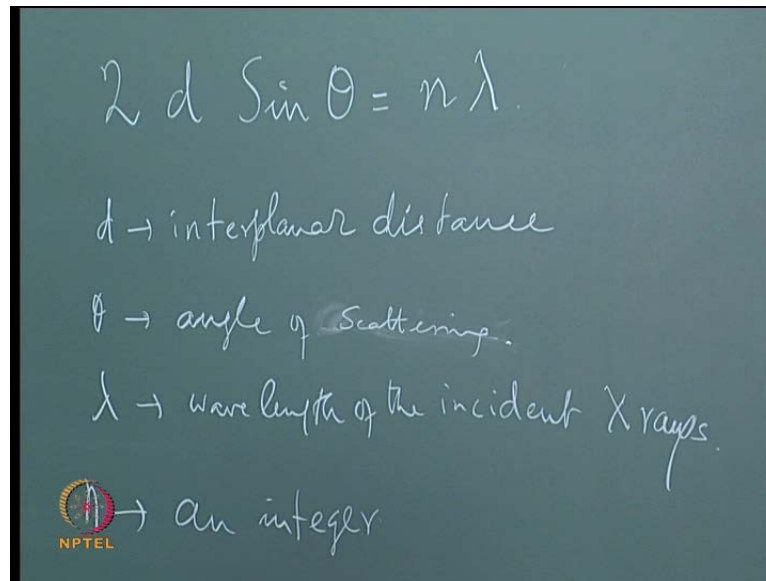 2 d Sin θ = n λ.
d → interplanar distance
θ → angle of Scattering.
λ → wavelength of the incident X rays.
n → an integer
NPTEL